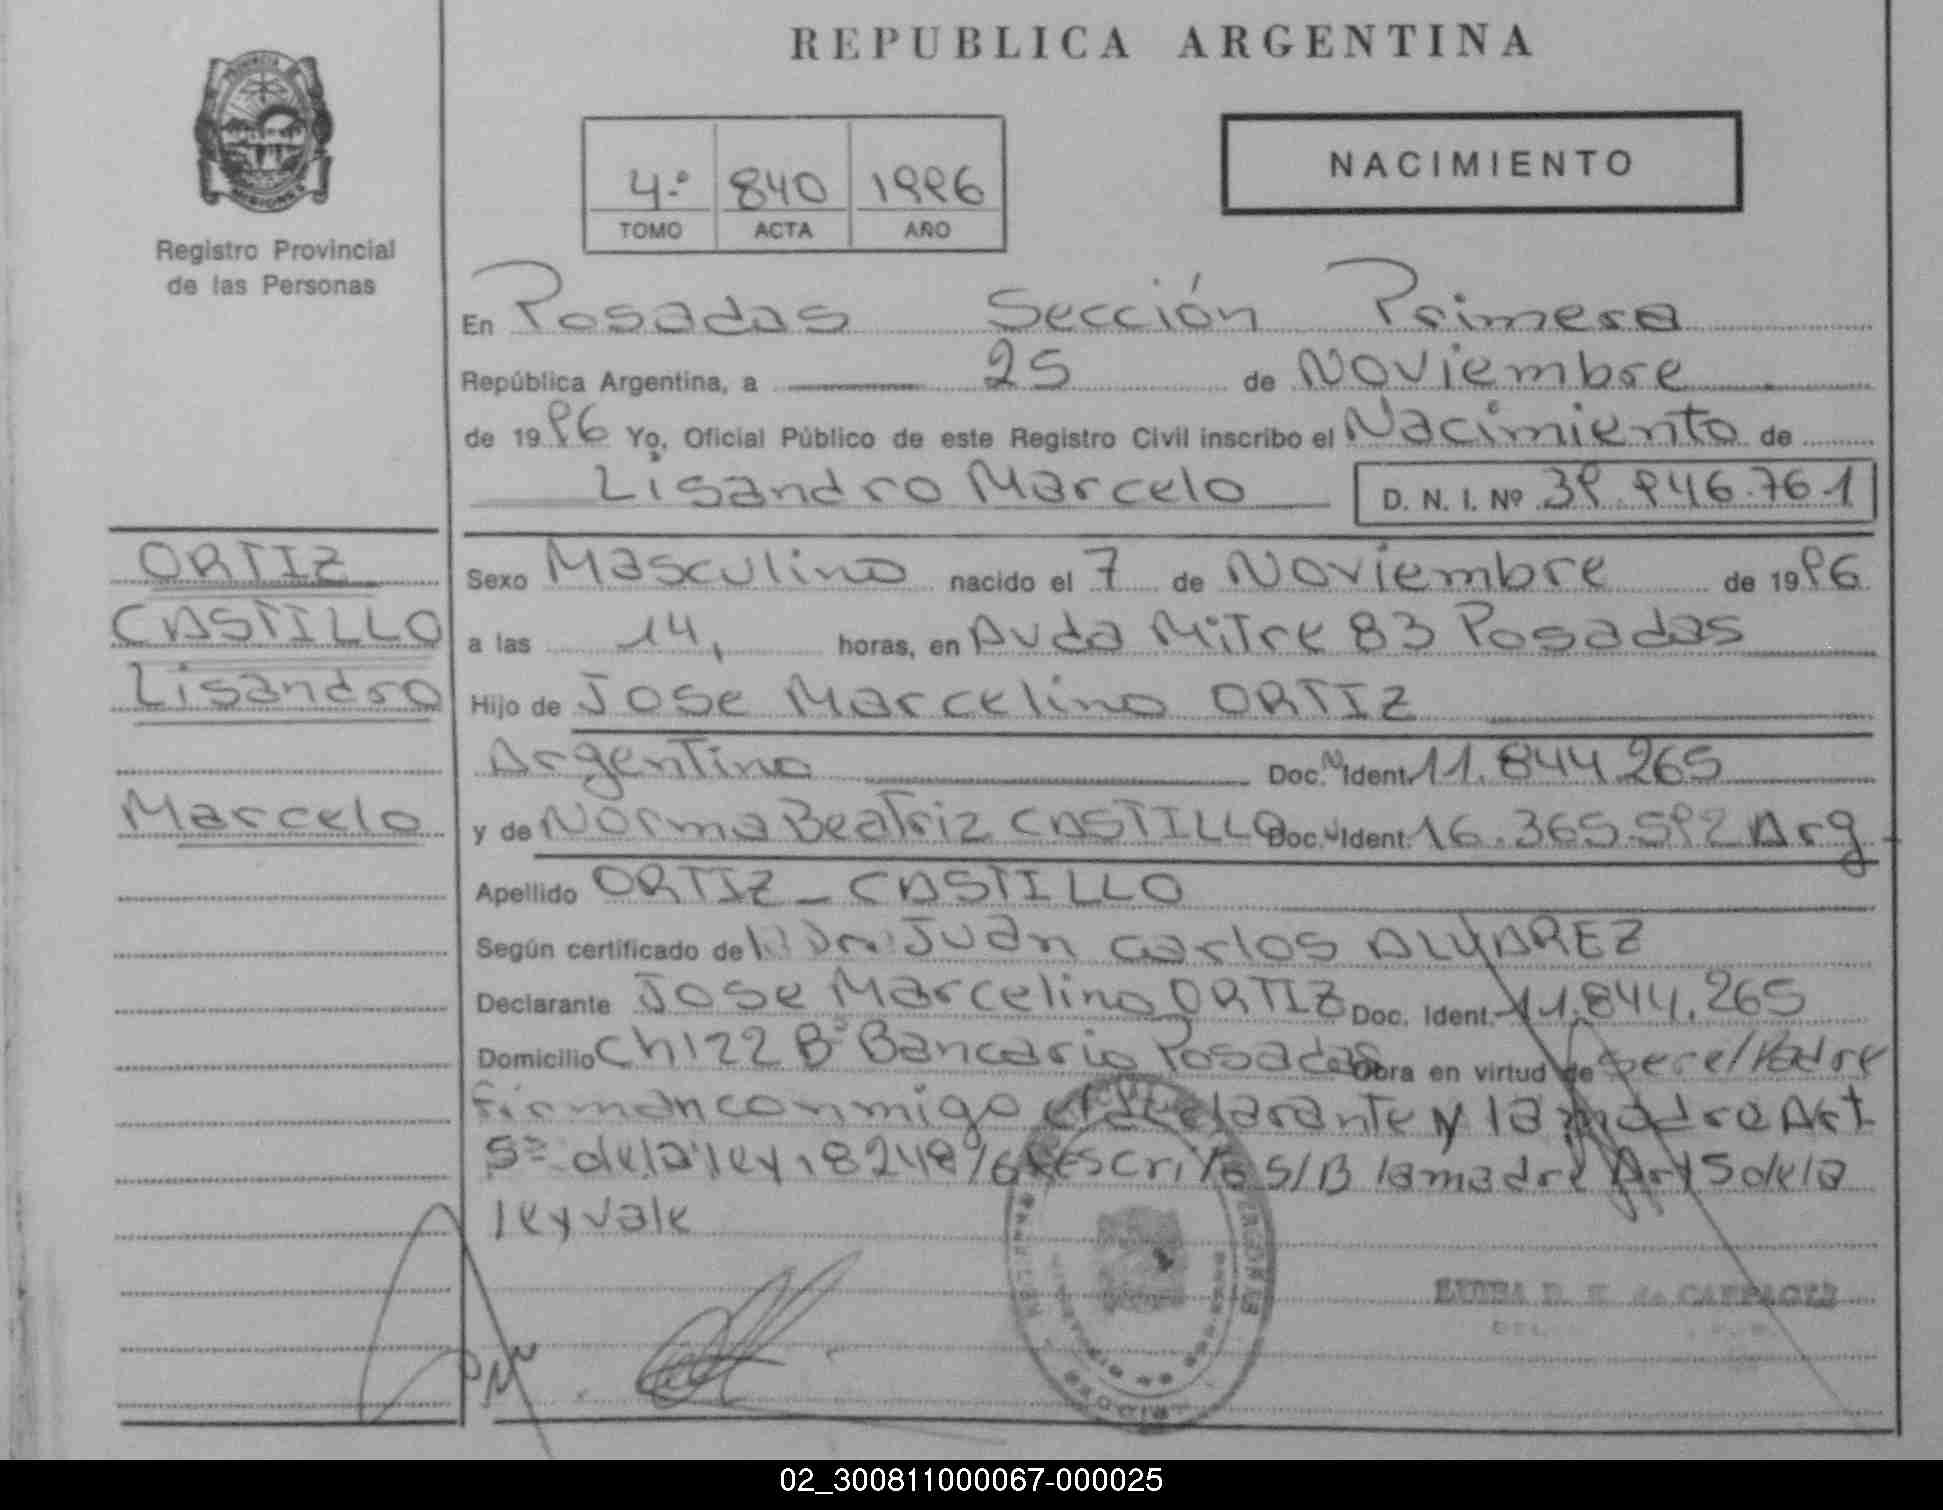 REPUBLICA ARGENTINA
4.º 840 1996
TOMO ACTA AÑO
NACIMIENTO
Registro Provincial
de las Personas
En Posadas Sección Primera
República Argentina, a 25 de Noviembre
de 1996 Yo, Oficial Público de este Registro Civil inscribo el Nacimiento de
Lisandro Marcelo D. N. I. Nº 39.946.761
ORTIZ
CASTILLO
Lisandro
Marcelo
Sexo Masculino nacido el 7 de Noviembre de 1996
a las 14, horas, en Avda Mitre 83 Posadas
Hijo de Jose Marcelino ORTIZ
Argentino Doc. Ident. 11.844.265
y de Norma Beatriz CASTILLO Doc. Ident. 16.365.592 Arg
Apellido ORTIZ - CASTILLO
Según certificado del Dr. Juan Carlos ALVAREZ
Declarante Jose Marcelino ORTIZ Doc. Ident. 11.844.265
Domicilio Ch122 Bº Bancario Posadas Obra en virtud de ser el Padre
Firman conmigo el declarante y la madre Art
5º de la ley 18248 S/B la madre Art 5 de la
ley vale
02_300811000067-000025